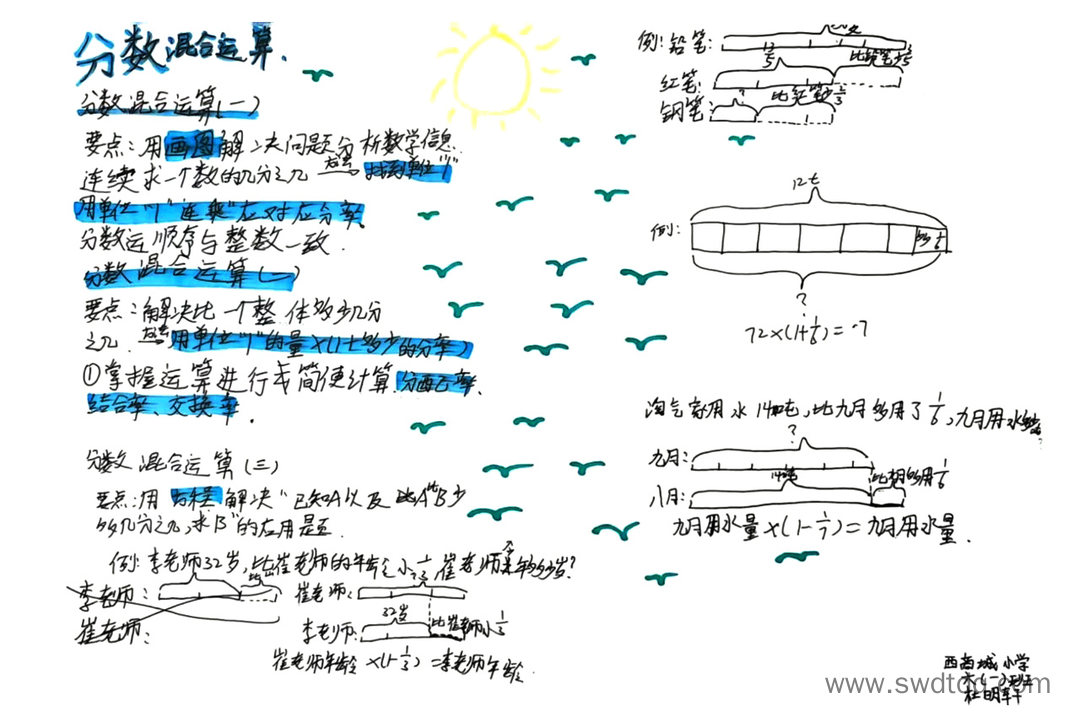 分数混合运算.
分数混合运算(一)
要点:用画图解决问题分析数学信息
连续求一个数的几分之几 方法 找到单位"1"
用单位"1"连乘"应对应分率.
分数运顺序与整数一致.
分数混合运算(一)
要点:解决比一个整体多少几分
之几. 方法 用单位"1"的量×(1±多少的分率)
①掌握运算进行 简便计算 分配率、
结合率、交换率.
分数混合运算(三)
要点:用方程解决"已知A以及比A B少
多几分之几,求B"的应用是
例:李老师32岁,比崔老师的年龄小1/3,崔老师今年多少岁?
李老师:
崔老师:
崔老师:
32岁
李老师: 比崔老师小1/3
崔老师年龄×(1-1/3)=李老师年龄.
例:铅笔:
比铅笔少
红笔:
? 比红笔少1/3
钢笔:
12t
例: 多1/6
?
72×(1+1/6)=7
淘气家用水14吨,比九月多用了1/6,九月用水多
?
九月:
14吨 用1/6
八月:
九月用水量×(1-1/7)=九月用水量.
西南城小学
六(一)班
杜明轩
www.swdtqq.com